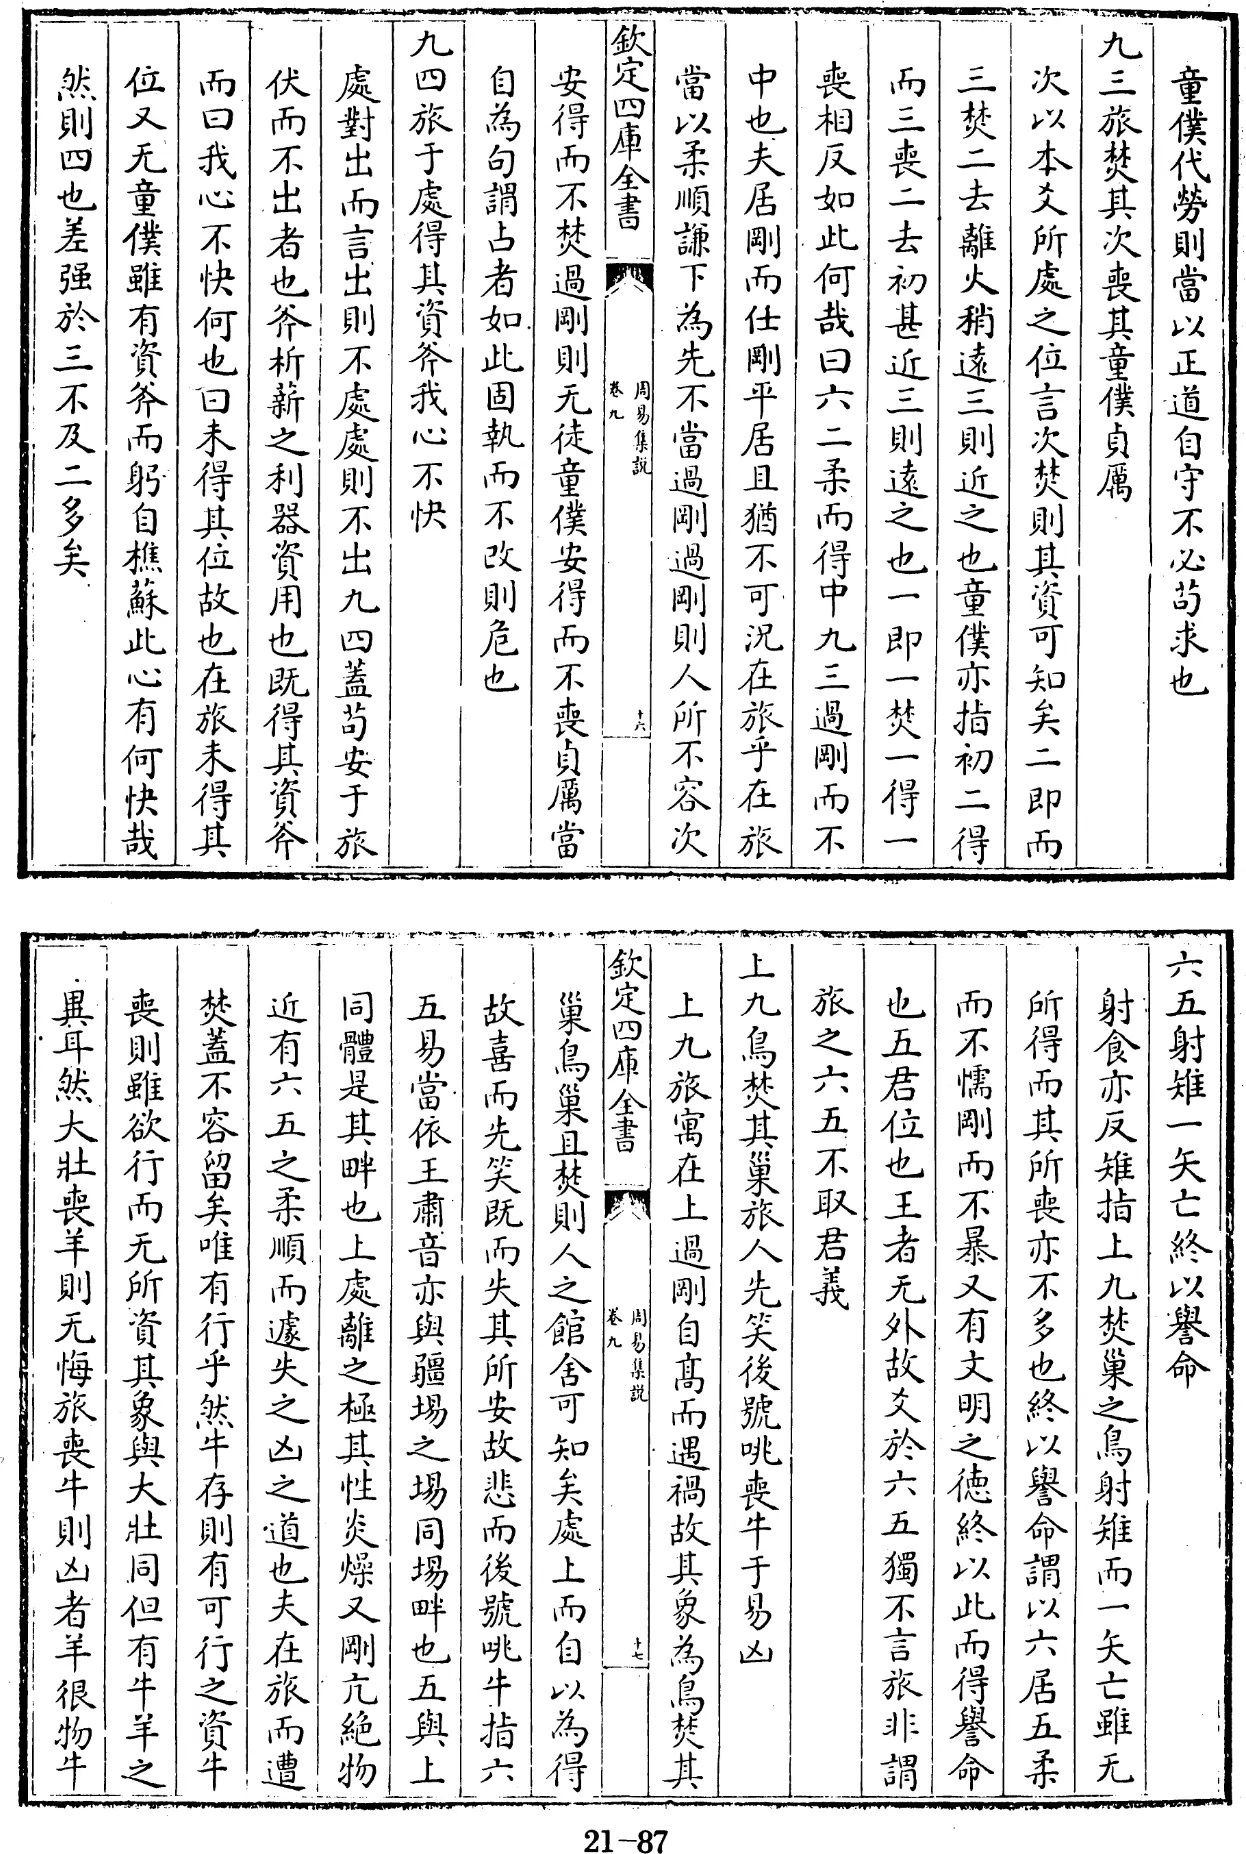 童僕代勞則當以正道自守不必苟求也
九三旅焚其次喪其童僕貞厲
次以本爻所處之位言次焚則其資可知矣二即而
三焚二去離火稍遠三則近之也童僕亦指初二得
而三喪二去初甚近三則遠之也一即一焚一得一
喪相反如此何哉曰六二柔而得中九三過剛而不
中也夫居剛而仕剛平居且猶不可況在旅乎在旅
當以柔順謙下為先不當過剛過剛則人所不容次
欽定四庫全書
周易集說
卷九
十六
安得而不焚過剛則无徒童僕安得而不喪貞厲當
自為句謂占者如此固執而不改則危也
九四旅于處得其資斧我心不快
處對出而言出則不處處則不出九四蓋苟安于旅
伏而不出者也斧析薪之利器資用也既得其資斧
而曰我心不快何也曰未得其位故也在旅未得其
位又无童僕雖有資斧而躬自樵蘇此心有何快哉
然則四也差强於三不及二多矣
六五射雉一矢亡終以譽命
射食亦反雉指上九焚巢之鳥射雉而一矢亡雖无
所得而其所喪亦不多也終以譽命謂以六居五柔
而不懦剛而不暴又有文明之德終以此而得譽命
也五君位也王者无外故爻於六五獨不言旅非謂
旅之六五不取君義
上九鳥焚其巢旅人先笑後號咷喪牛于易凶
上九旅寓在上過剛自高而遇禍故其象為鳥焚其
欽定四庫全書
周易集說
卷九
十七
巢鳥巢且焚則人之館舍可知矣處上而自以為得
故喜而先笑既而失其所安故悲而後號咷牛指六
五易當依王肅音亦與疆埸之埸同埸畔也五與上
同體是其畔也上處離之極其性炎燥又剛亢絶物
近有六五之柔順而遽失之凶之道也夫在旅而遭
焚蓋不容留矣唯有行乎然牛存則有可行之資牛
喪則雖欲行而无所資其象與大壯同但有牛羊之
異耳然大壯喪羊則无悔旅喪牛則凶者羊很物牛
21-87